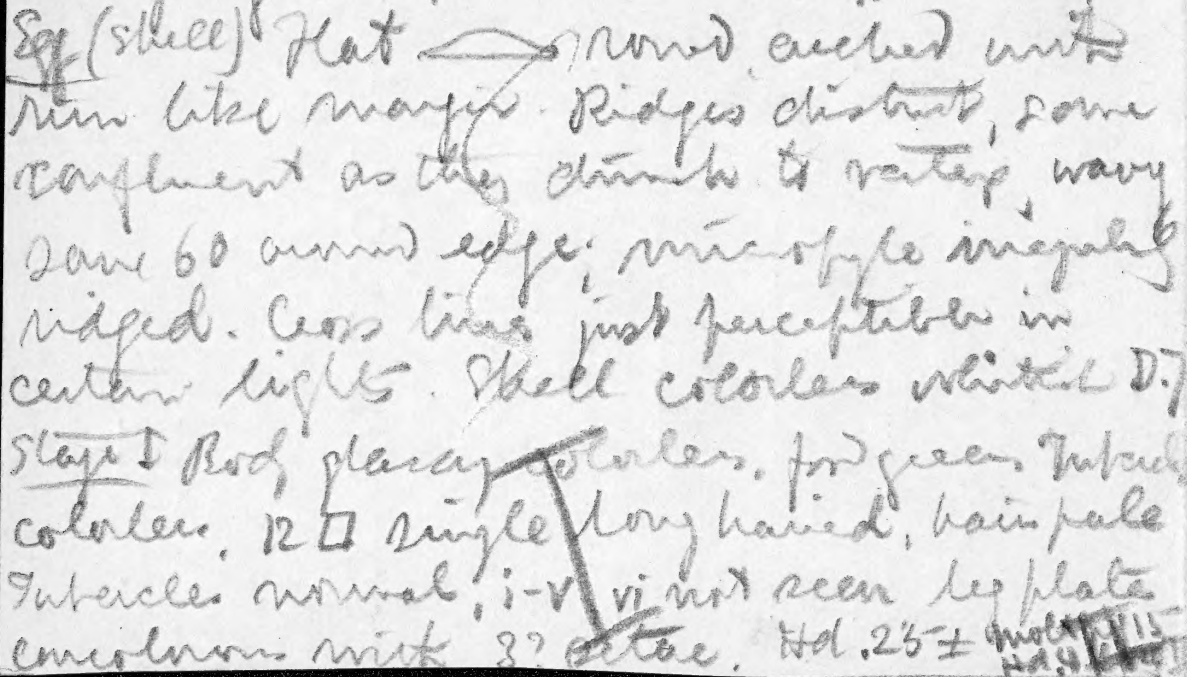 Egg (shell) Flat round, arched with
rim like margin. Ridges distinct, some
confluent as they climb to vertex, wavy
some 60 around edge; micropyle irregularly
ridged. Cross lines just perceptible in
certain lights. Shell colorless whitish D.
Stage I Body glassy colorless, food green Tubercles
colorless, single long haired, hairs pale
Tubercles normal, i-v vi not seen leg plate
concolorous with 3? setae. Hd .25±